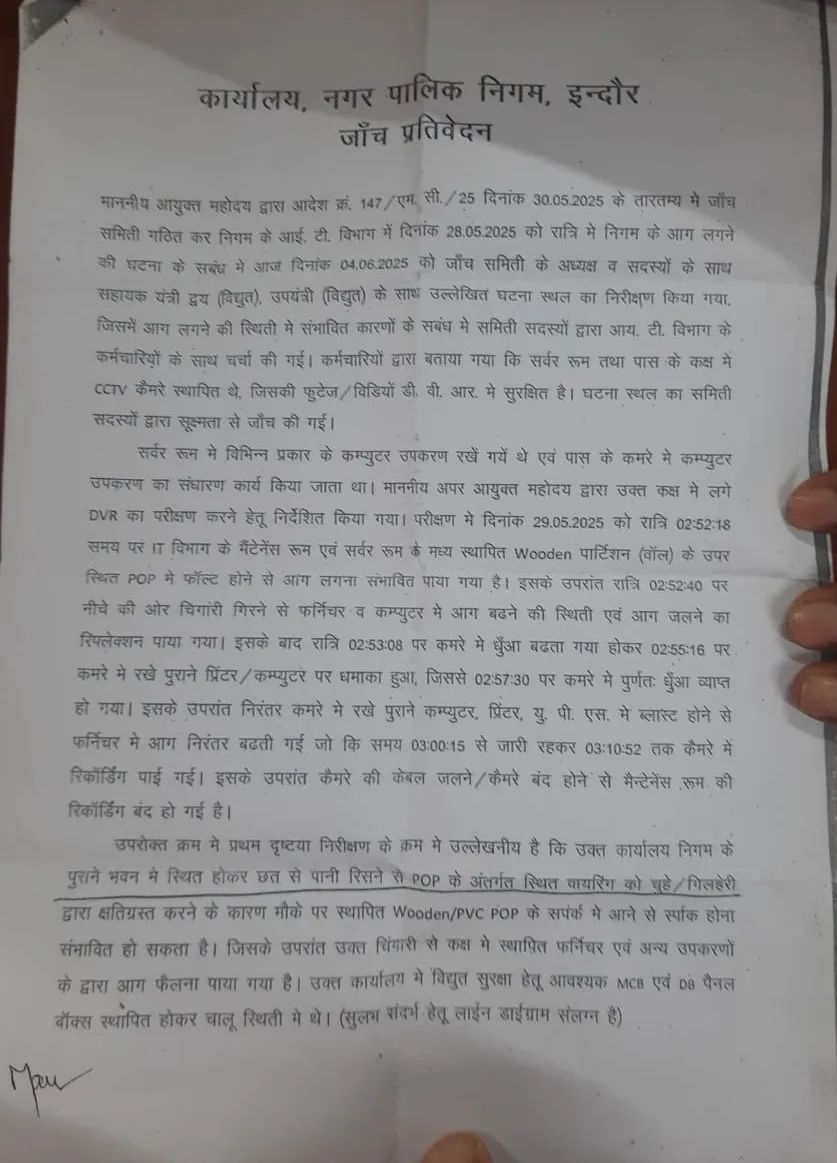 कार्यालय, नगर पालिक निगम, इन्दौर
जाँच प्रतिवेदन
माननीय आयुक्त महोदय द्वारा आदेश क्रं. 147/एम. सी./25 दिनांक 30.05.2025 के तारतम्य मे जाँच
समिती गठित कर निगम के आई. टी. विभाग में दिनांक 28.05.2025 को रात्रि मे निगम के आग लगने
की घटना के सबंध मे आज दिनांक 04.06.2025 को जाँच समिती के अध्यक्ष व सदस्यों के साथ
सहायक यंत्री द्वय (विद्युत), उपयंत्री (विद्युत) के साथ उल्लेखित घटना स्थल का निरीक्षण किया गया,
जिसमें आग लगने की स्थिती मे संभावित कारणों के सबंध मे समिती सदस्यों द्वारा आय. टी. विभाग के
कर्मचारियों के साथ चर्चा की गई। कर्मचारियों द्वारा बताया गया कि सर्वर रूम तथा पास के कक्ष मे
CCTV कैमरे स्थापित थे, जिसकी फुटेज/विडियों डी. वी. आर. मे सुरक्षित है। घटना स्थल का समिती
सदस्यों द्वारा सूक्ष्मता से जाँच की गई।
सर्वर रूम मे विभिन्न प्रकार के कम्प्युटर उपकरण रखें गयें थे एवं पास के कमरे मे कम्प्युटर
उपकरण का संधारण कार्य किया जाता था। माननीय अपर आयुक्त महोदय द्वारा उक्त कक्ष मे लगे
DVR का परीक्षण करने हेतू निर्देशित किया गया। परीक्षण मे दिनांक 29.05.2025 को रात्रि 02:52:18
समय पर IT विभाग के मैंटेनेंस रूम एवं सर्वर रूम के मध्य स्थापित Wooden पार्टिशन (वॉल) के उपर
स्थित POP मे फॉल्ट होने से आग लगना संभावित पाया गया है। इसके उपरांत रात्रि 02:52:40 पर
नीचे की ओर चिगांरी गिरने से फर्निचर व कम्प्युटर मे आग बढने की स्थिती एवं आग जलने का
रिफ्लेक्शन पाया गया। इसके बाद रात्रि 02:53:08 पर कमरे मे धुँआ बढता गया होकर 02:55:16 पर
कमरे मे रखे पुराने प्रिंटर/कम्प्युटर पर धमाका हुआ, जिससे 02:57:30 पर कमरे मे पुर्णतः धुँआ व्याप्त
हो गया। इसके उपरांत निरंतर कमरे मे रखे पुराने कम्प्युटर, प्रिंटर, यु. पी. एस. मे ब्लास्ट होने से
फर्निचर मे आग निरंतर बढती गई जो कि समय 03:00:15 से जारी रहकर 03:10:52 तक कैमरे में
रिकॉर्डिंग पाई गई। इसके उपरांत कैमरे की केबल जलने/कैमरे बंद होने से मैन्टेनेंस रूम की
रिकॉर्डिंग बंद हो गई है।
उपरोक्त क्रम मे प्रथम दृष्टया निरीक्षण के क्रम मे उल्लेखनीय है कि उक्त कार्यालय निगम के
पुराने भवन मे स्थित होकर छत से पानी रिसने से POP के अंतर्गत स्थित वायरिंग को चुहे/गिलहेरी
द्वारा क्षतिग्रस्त करने के कारण मौके पर स्थापित Wooden/PVC POP के सपंर्क मे आने से स्पार्क होना
संभावित हो सकता है। जिसके उपरांत उक्त चिंगारी से कक्ष मे स्थापित फर्निचर एवं अन्य उपकरणों
के द्वारा आग फैलना पाया गया है। उक्त कार्यालय मे विद्युत सुरक्षा हेतू आवश्यक MCB एवं DB पैनल
बॉक्स स्थापित होकर चालू स्थिती मे थे। (सुलभ संदर्भ हेतू लाईन डाईग्राम संलग्न है)